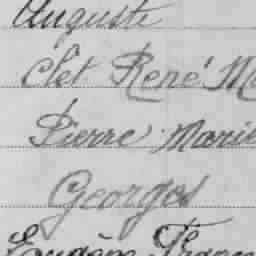 Auguste
Clet René M
Pierre Marie
Georges
Eugène